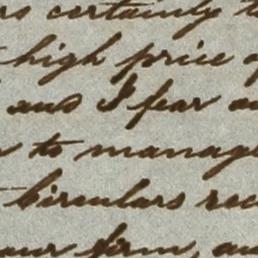 certainly
high price
and I fear
to manage
Circulars rec
our firm, an